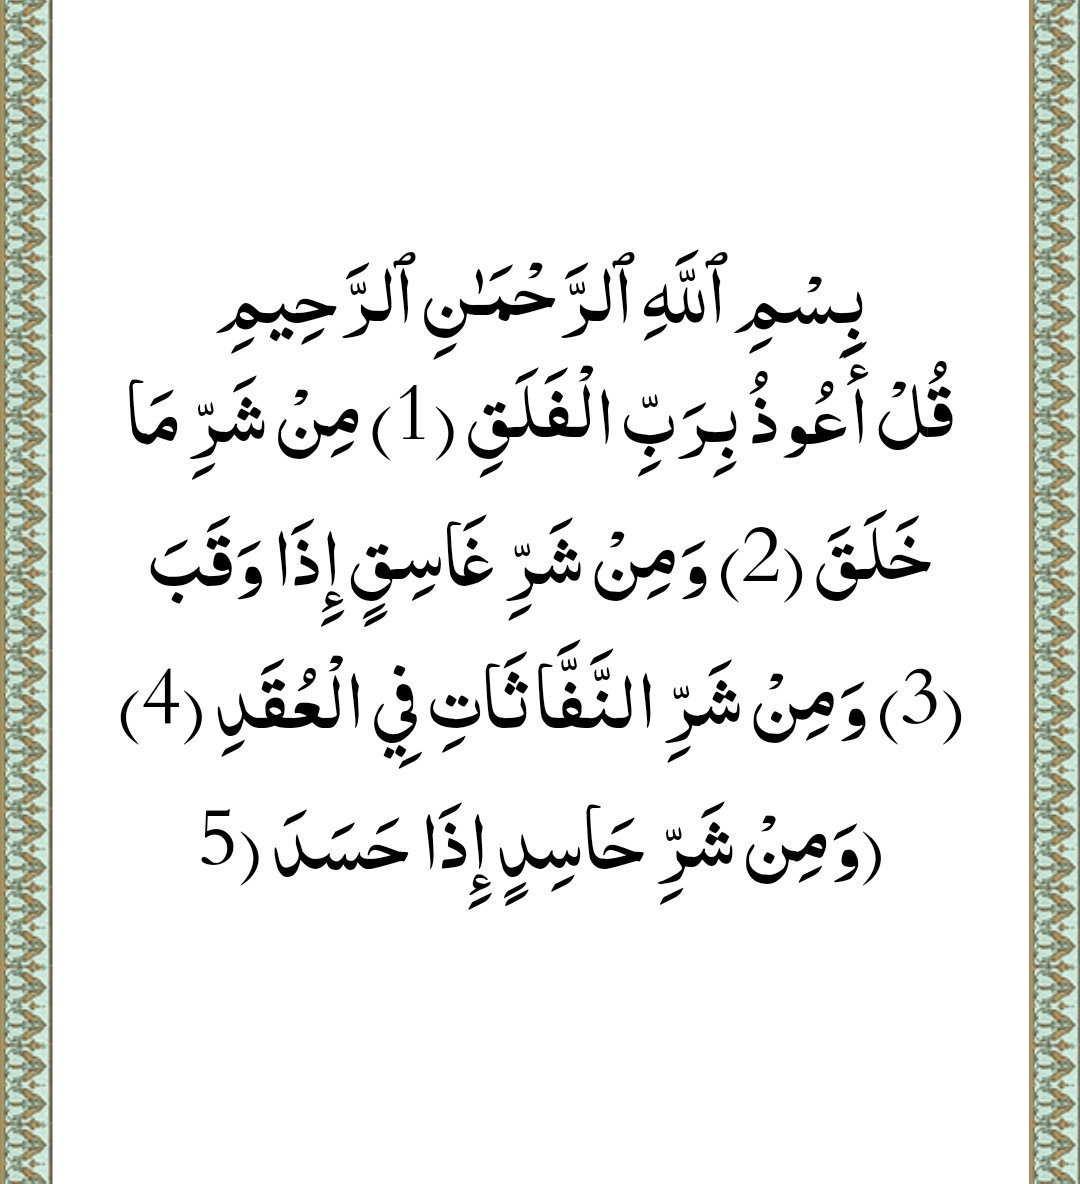 بِسْمِ ٱللَّهِ ٱلرَّحْمَـٰنِ ٱلرَّحِيمِ
قُلْ أَعُوذُ بِرَبِّ الْفَلَقِ (1) مِنْ شَرِّ مَا
خَلَقَ (2) وَمِنْ شَرِّ غَاسِقٍ إِذَا وَقَبَ
(3) وَمِنْ شَرِّ النَّفَّاثَاتِ فِي الْعُقَدِ (4)
(وَمِنْ شَرِّ حَاسِدٍ إِذَا حَسَدَ (5